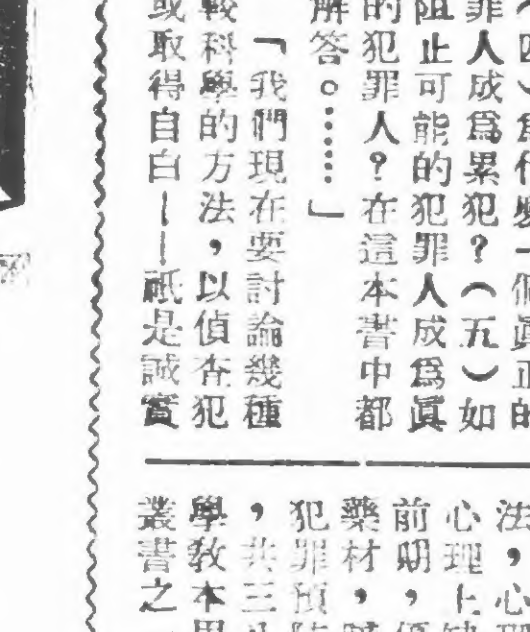 (四)爲什麼一個眞正的
罪人成爲累犯?(五)如
阻止可能的犯罪人成爲眞
的犯罪人?在這本書中都
解答。……」
「我們現在要討論幾種
較科學的方法,以偵查犯
或取得自白——祇是誠實
法,心理
心理上缺
前期,優
藥材,
犯罪預防
,共三
學敎本
叢書之一